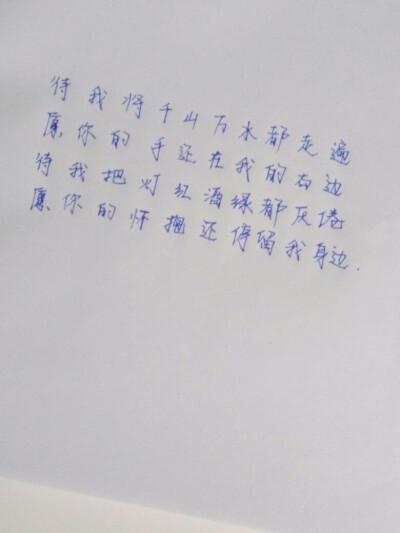 待我将千山万水都走遍
愿你的手还在我的右边
待我把灯红酒绿都厌倦
愿你的怀抱还停留我身边.